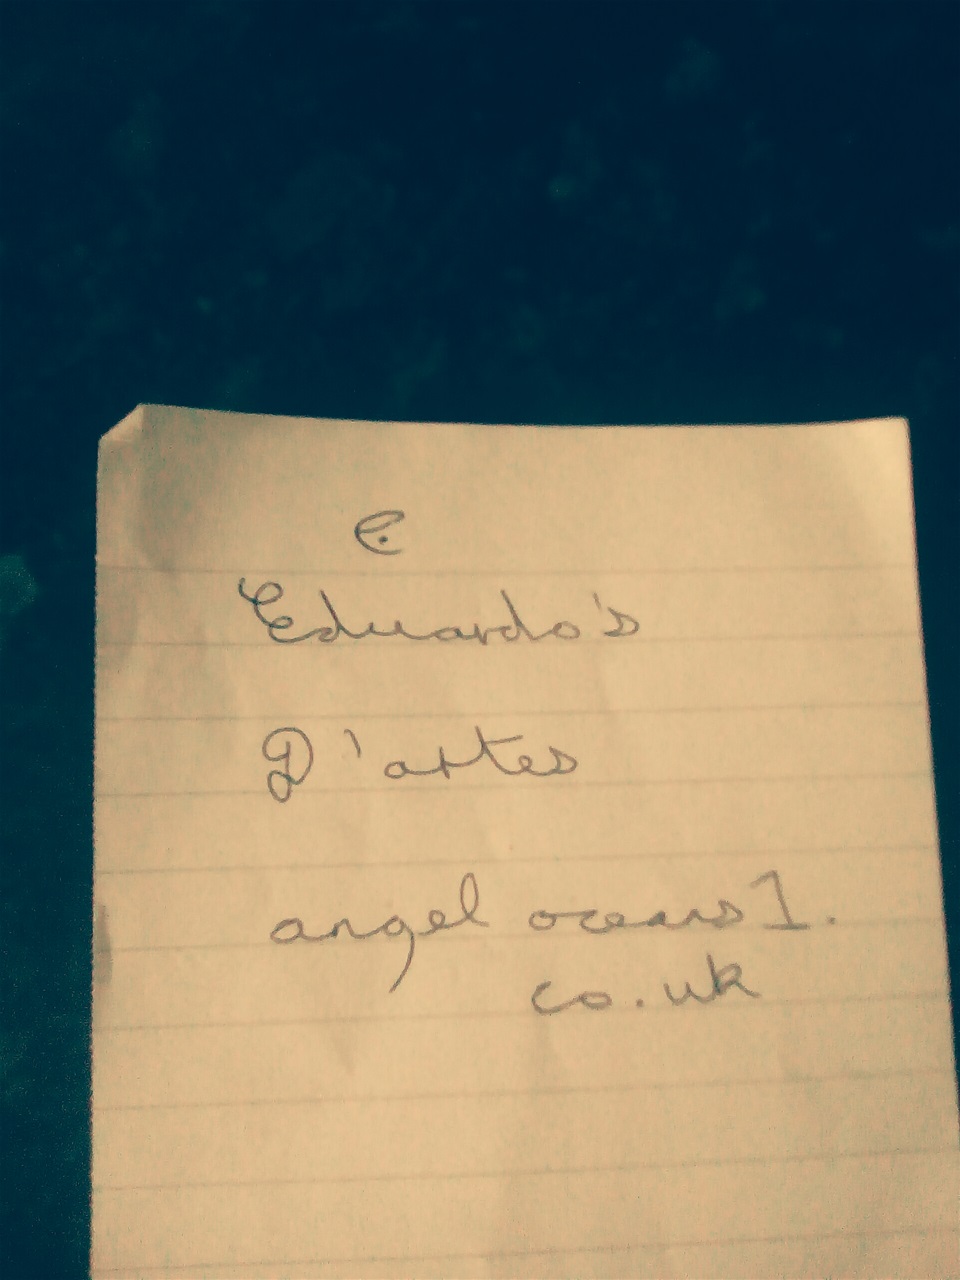 e
Eduardo's
D'artes
angel oceans1.
co.uk